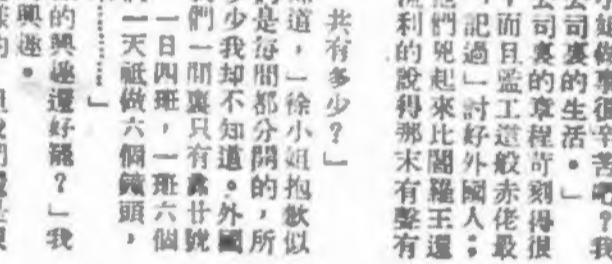 小姐做事很辛苦吧？我
公司裏的生活。」
公司裏的章程苛刻得很
而且監工這般赤佬最
「記過」討好外國人；
他們兇起來比閻羅王還
流利的說得那末有聲有
共有多少？」
知道，」徐小姐抱歉似
的是每間都分開的，所
多少我却不知道。外國
們一間裏只有靠廿號
一日四班，一班六個
一天祇做六個鐘頭，
…………」
的興趣還好罷？」我
興趣。